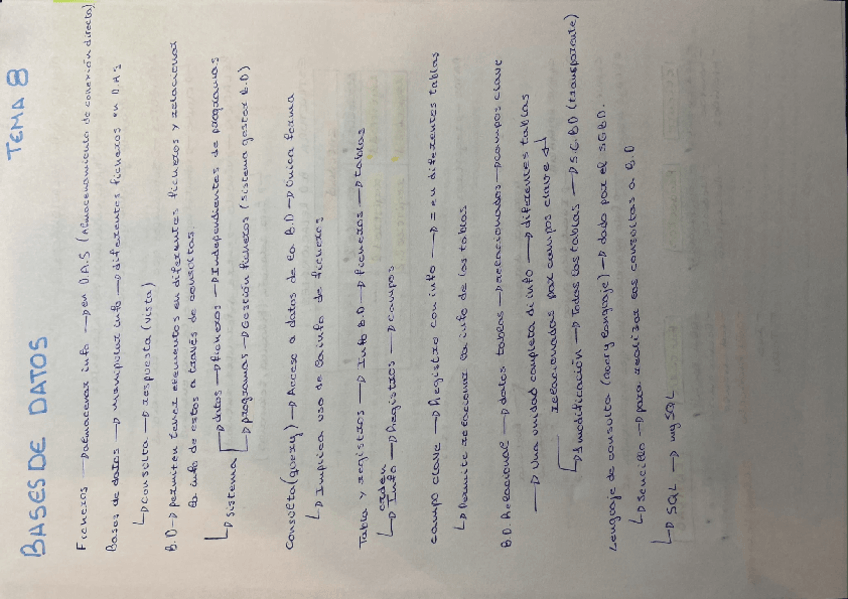 TEMA 8
BASES DE DATOS
Ficheros → almacenar info → en D.A.S (Almacenamiento de conexión directa)
Bases de datos → manipular info → diferentes ficheros en D.A.S
↳ consulta → respuesta (vista)
B.D → permiten tener elementos en diferentes ficheros y relacionar
la info de estos a través de consultas.
↳ Sistema → Datos → ficheros → Independientes de programas
↳ programas → Gestión ficheros (sistema gestor B.D)
Consulta (query) → Acceso a datos de la B.D → Única forma
↳ Implica uso de la info de ficheros
Tabla y registros → Info B.D → ficheros → tablas
orden
↳ Info → Registros → campos
campo clave → Registro con info → = en diferentes tablas
↳ Permite relacionar la info de las tablas
B.D. Relacional → datos tablas → relacionados → campos clave
→ Una unidad completa di info → diferentes tablas
relacionadas por campos clave
↳ 1 modificación → Todas las tablas → S.G.BD (transparente)
Lenguaje de consulta (query language) → dado por el SGBD.
↳ Sencillo → para realizar las consultas a B.D
↳ SQL → mySQL